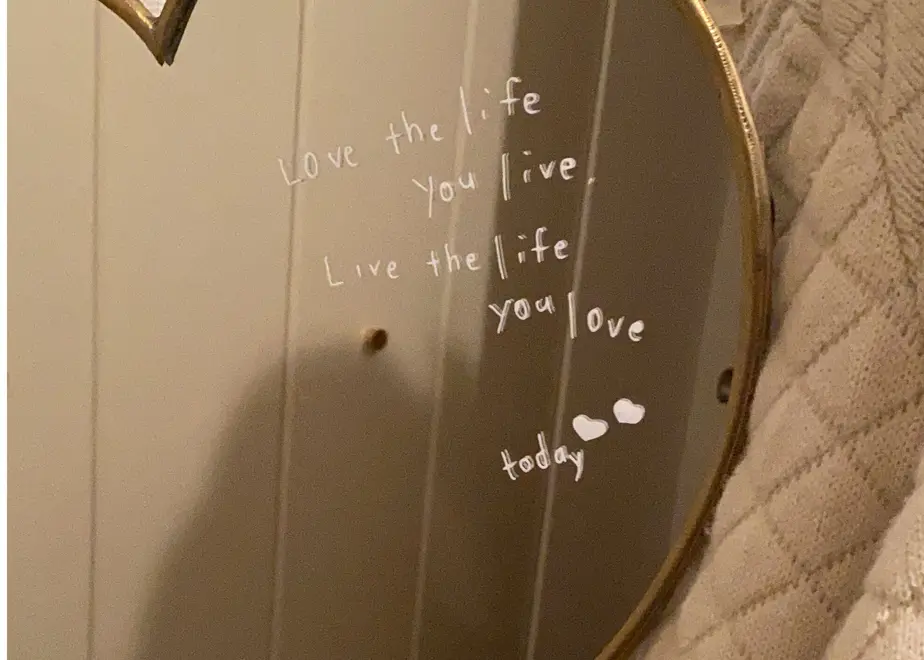 Love the life
you live.
Live the life
you love
today